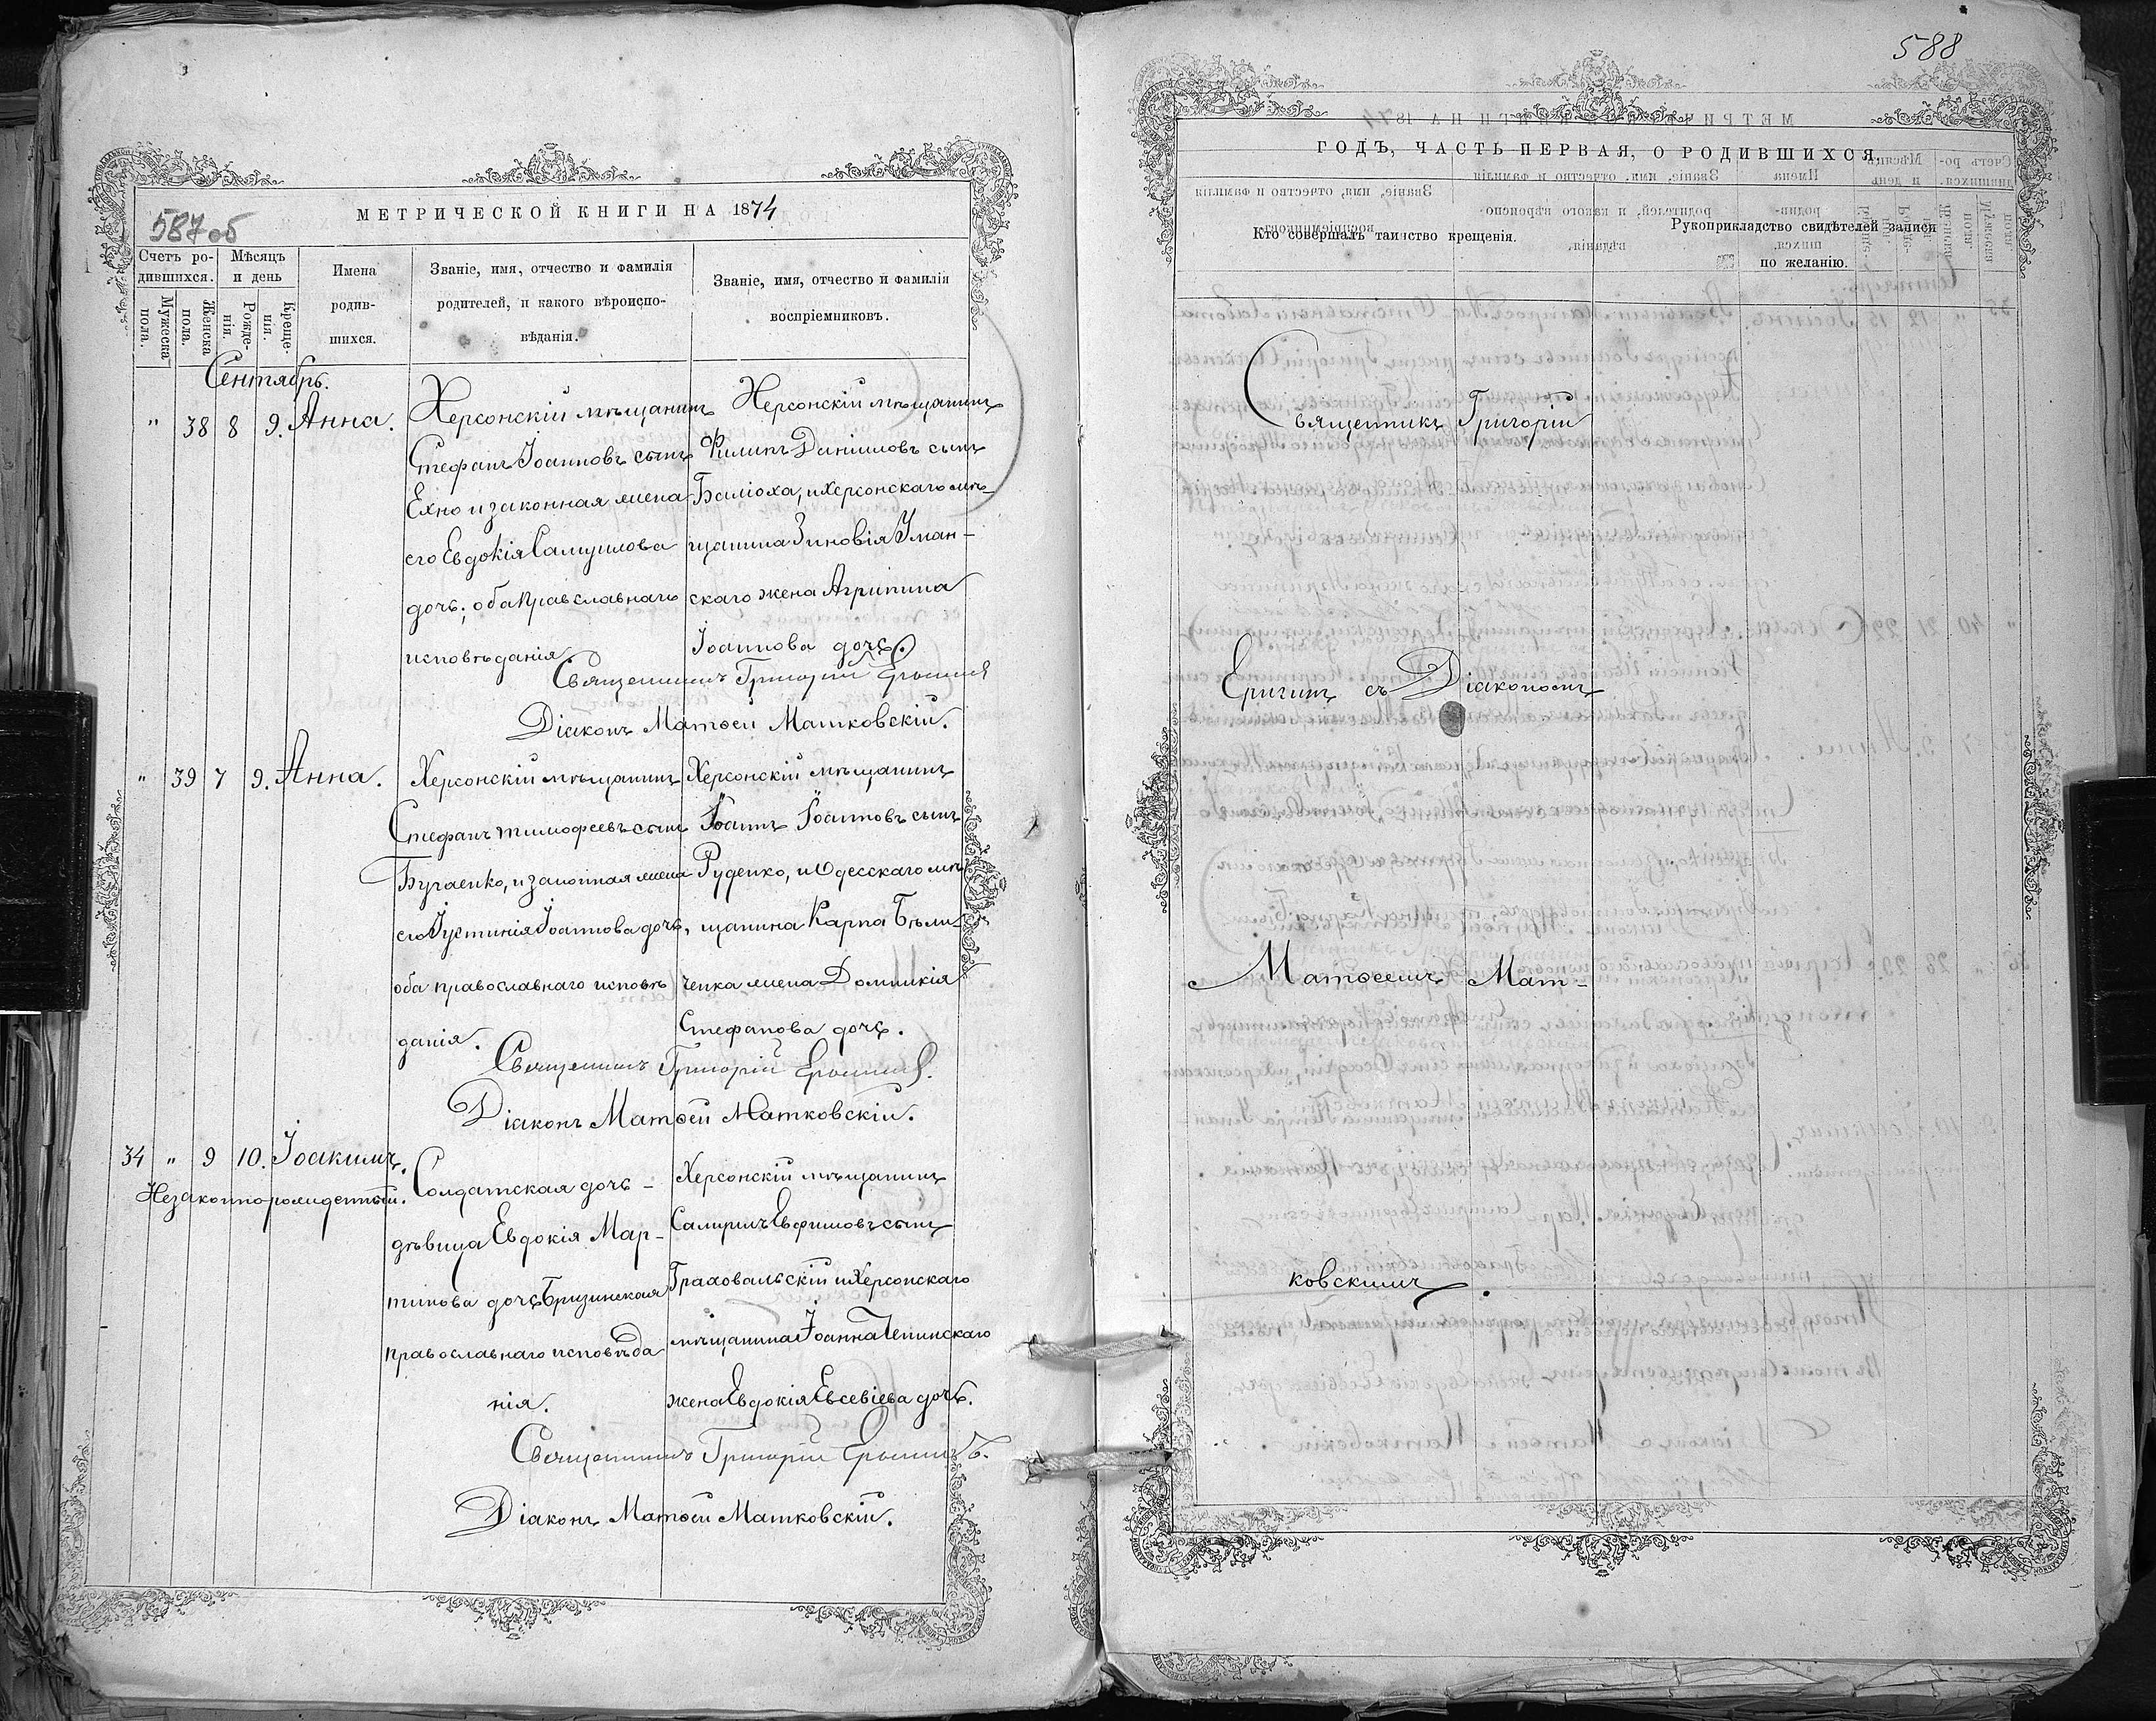 587 об
МЕТРИЧЕСКОЙ КНИГИ НА 1874
Счетъ ро-
дившихся.
Мужеска
пола.
Женска
пола.
Мѣсяцъ
и день
Рожде-
нія.
Креще-
нія.
Имена
родив-
шихся.
Званіе, имя, отчество и фамилія
родителей, и какого вѣроиспо-
вѣданія.
Званіе, имя, отчество и фамилія
воспріемниковъ.
Сентябрь.
" 38 8 9. Анна.
Херсонскій мѣщанинъ
Стефанъ Іоанновъ сынъ
Ехно и законная жена
его Евдокія Самуилова
дочь; оба православнаго
исповѣданія
Херсонскій мѣщанинъ
Филипъ Даніиловъ сынъ
и Херсонскаго мѣ-
щанина Зиновія Уман-
скаго жена Агрипина
Іоаннова дочь.
Священникъ Григорій
Діаконъ Матѳей Матковскій.
" 39 7 9. Анна.
Херсонскій мѣщанинъ
Стефанъ Тимофеевъ сынъ
Бугаенко, и законная жена
его Іустинія Іоаннова дочь,
оба православнаго исповѣ
данія.
Херсонскій мѣщанинъ
Іоаннъ Іоанновъ сынъ
Руденко, и Одесскаго мѣ
щанина Карпа Бѣли-
ченка жена Домникія
Стефанова дочь.
Священникъ Григорій
Діаконъ Матѳей Матковскій.
34 " 9 10. Іоакимъ.
Незаконнорожденный.
Солдатская дочь -
дѣвица Евдокія Мар-
тинова дочь
православнаго исповѣда
нія.
Херсонскій мѣщанинъ
Евфимовъ сынъ
и Херсонскаго
мѣщанина Іоанна Чепинскаго
жена Евдокія Евсевіева дочь.
Священникъ Григорій
Діаконъ Матѳей Матковскій.
588
ГОДЪ, ЧАСТЬ ПЕРВАЯ, О РОДИВШИХСЯ.
Кто совершалъ таинство крещенія.
Рукоприкладство свидѣтелей записи
по желанію.
Священникъ Григорій
съ Діакономъ
Матѳеемъ Мат-
ковскимъ.